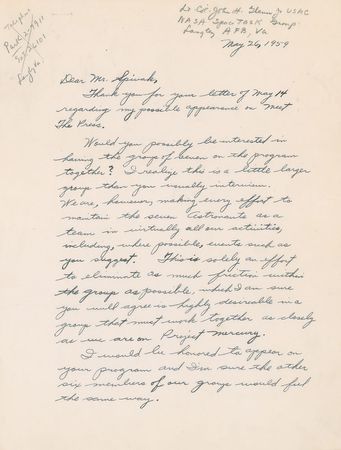 Lt. Col. John H. Glenn Jr. USMC
NASA Space TASK Group
Langley AFB, Va
May 26, 1959
Dear Mr. Spivak,
Thank you for your letter of May 14
regarding my possible appearance on Meet
The Press.
Would you possibly be interested in
having the group of seven on the program
together? I realize this is a little larger
group than you usually interview.
We are, however, making every effort to
maintain the seven Astronauts as a
team in virtually all our activities,
including, where possible, events such as
you suggest. This is solely an effort
to eliminate as much friction within
the group as possible, which I am sure
you will agree is highly desireable in a
group that must work together as closely
as we are on Project Mercury.
I would be honored to appear on
your program and I'm sure the other
six members of our group would feel
the same way.